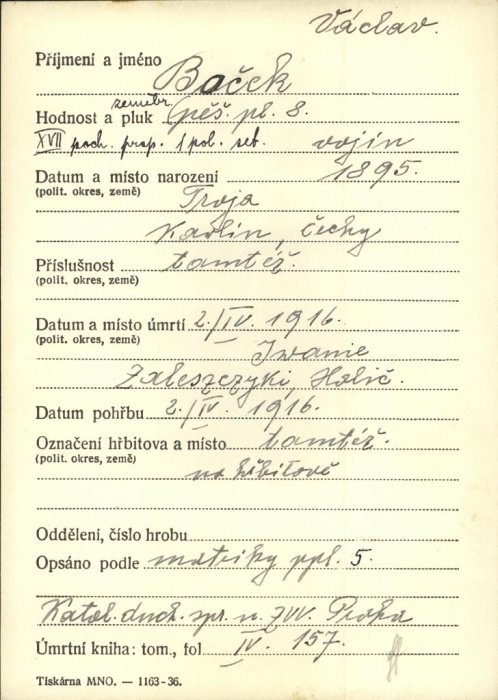 Václav.
Příjmení a jméno Boček
zeměbr.
Hodnost a pluk pěš. pl. 8.
XVII poch. prap. 1 pol. set. vojín
Datum a místo narození 1895.
(polit. okres, země) Troja
Karlín, Čechy
Příslušnost tamtéž.
(polit. okres, země)
Datum a místo úmrtí 2./IV. 1916.
(polit. okres, země) Iwanie
Zaleszczyki, Halič.
Datum pohřbu 2./IV. 1916.
Označení hřbitova a místo tamtéž.
(polit. okres, země)
na hřbitově
Oddělení, číslo hrobu
Opsáno podle matriky ppl. 5.
Katol. duch. spr. n. ZVV. Praha
Úmrtní kniha: tom., fol IV. 157.
Tiskárna MNO. — 1163-36.